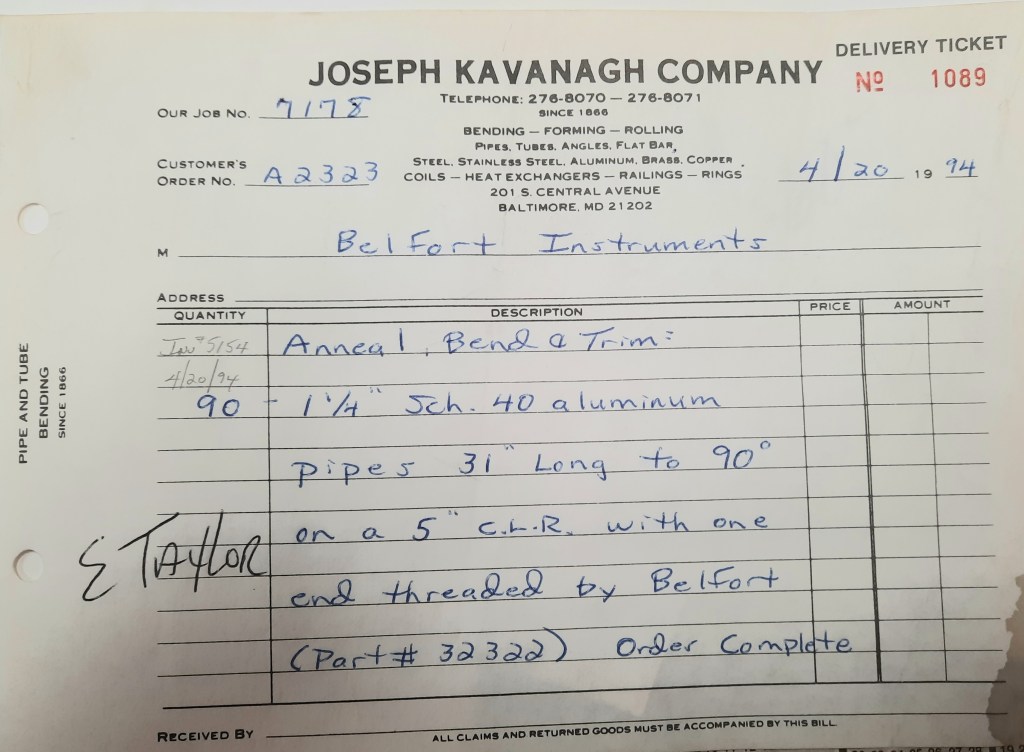 DELIVERY TICKET
JOSEPH KAVANAGH COMPANY
Nº 1089
TELEPHONE: 276-8070 — 276-8071
SINCE 1866
OUR JOB NO. 7178
BENDING — FORMING — ROLLING
PIPES, TUBES, ANGLES, FLAT BAR,
STEEL, STAINLESS STEEL, ALUMINUM, BRASS, COPPER
COILS — HEAT EXCHANGERS — RAILINGS — RINGS
CUSTOMER'S
ORDER NO. A2323
4/20 19 94
201 S. CENTRAL AVENUE
BALTIMORE, MD 21202
M Belfort Instruments
ADDRESS
QUANTITY DESCRIPTION PRICE AMOUNT
Inv# 5154
4/20/94
Anneal, Bend & Trim:
90 - 1 1/4" Sch. 40 aluminum
pipes 31" Long to 90°
on a 5" C.L.R. with one
end threaded by Belfort
(Part# 32322) Order Complete
E TAYLOR
PIPE AND TUBE
BENDING
SINCE 1866
RECEIVED BY
ALL CLAIMS AND RETURNED GOODS MUST BE ACCOMPANIED BY THIS BILL